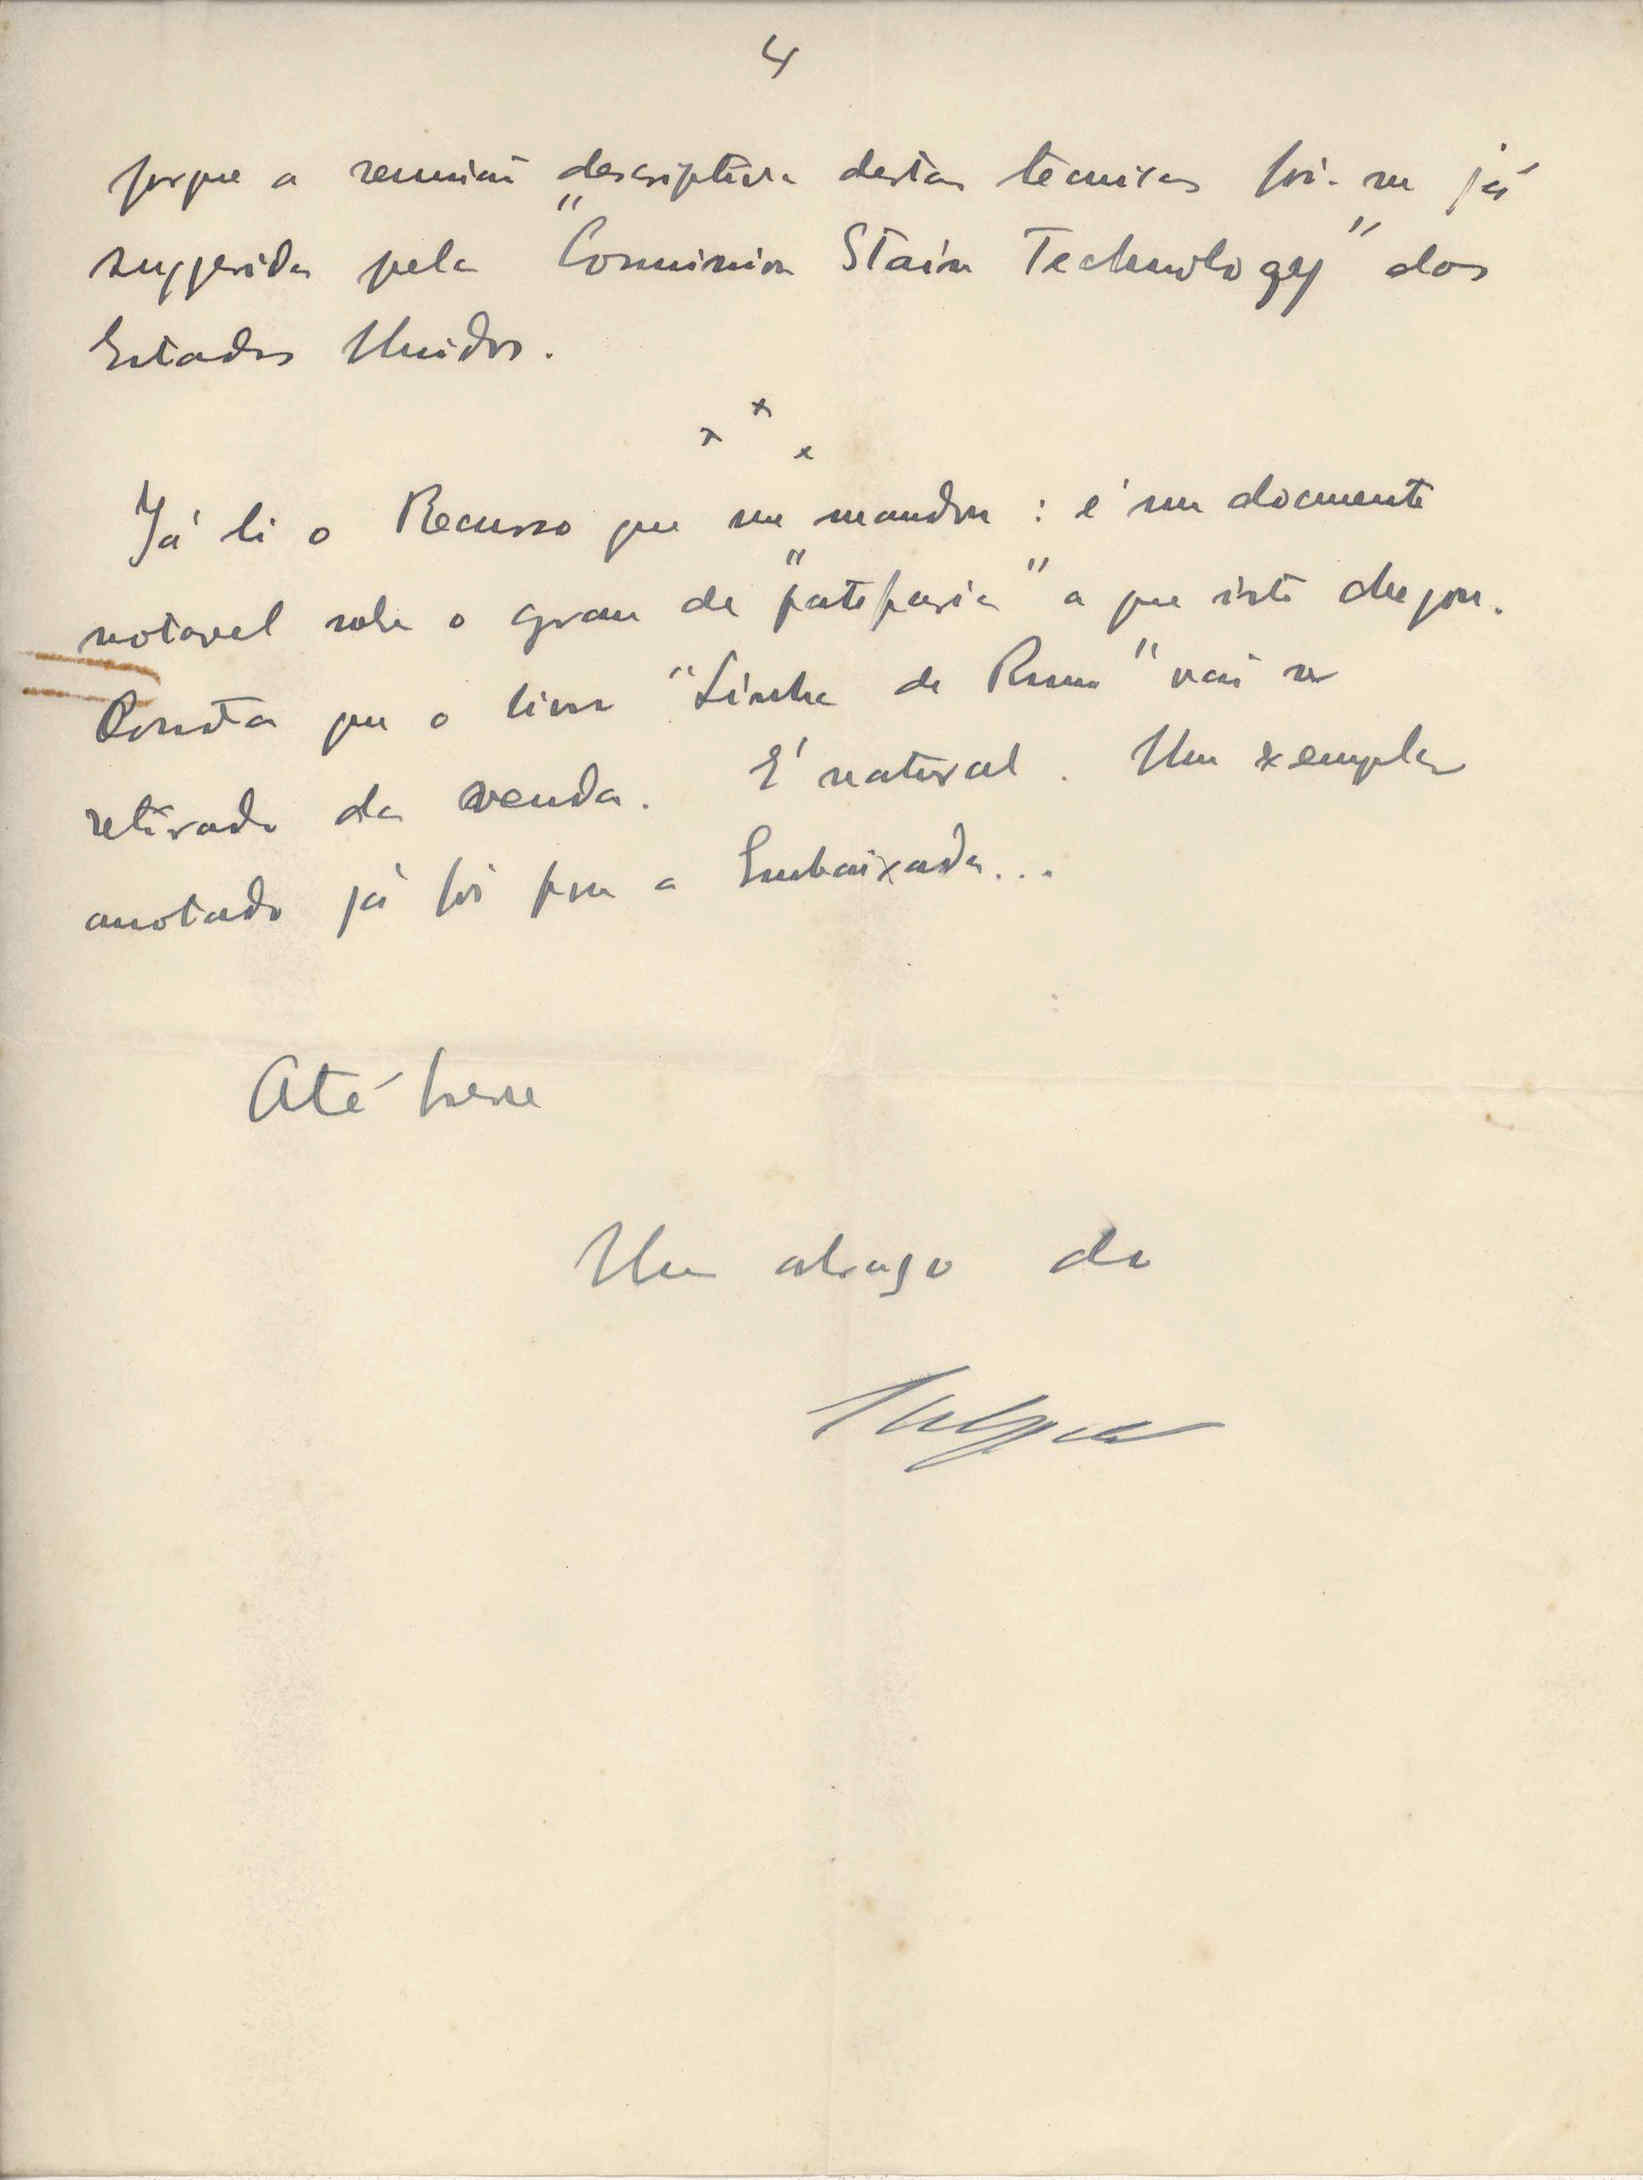 4
porque a reunião descriptiva destas tecnicas foi-me já
suggerida pela "Commission Stain Technology" dos
Estados Unidos.
x x x
Já li o Recurso que me mandou: é um documento
notavel sobre o grau de "patifaria" a que isto chegou.
Consta que o livro "Linha de Rumo" vai ser
retirado da venda. É natural. Um exemplar
anotado já foi para a Embaixada...
Até breve
Um abraço do